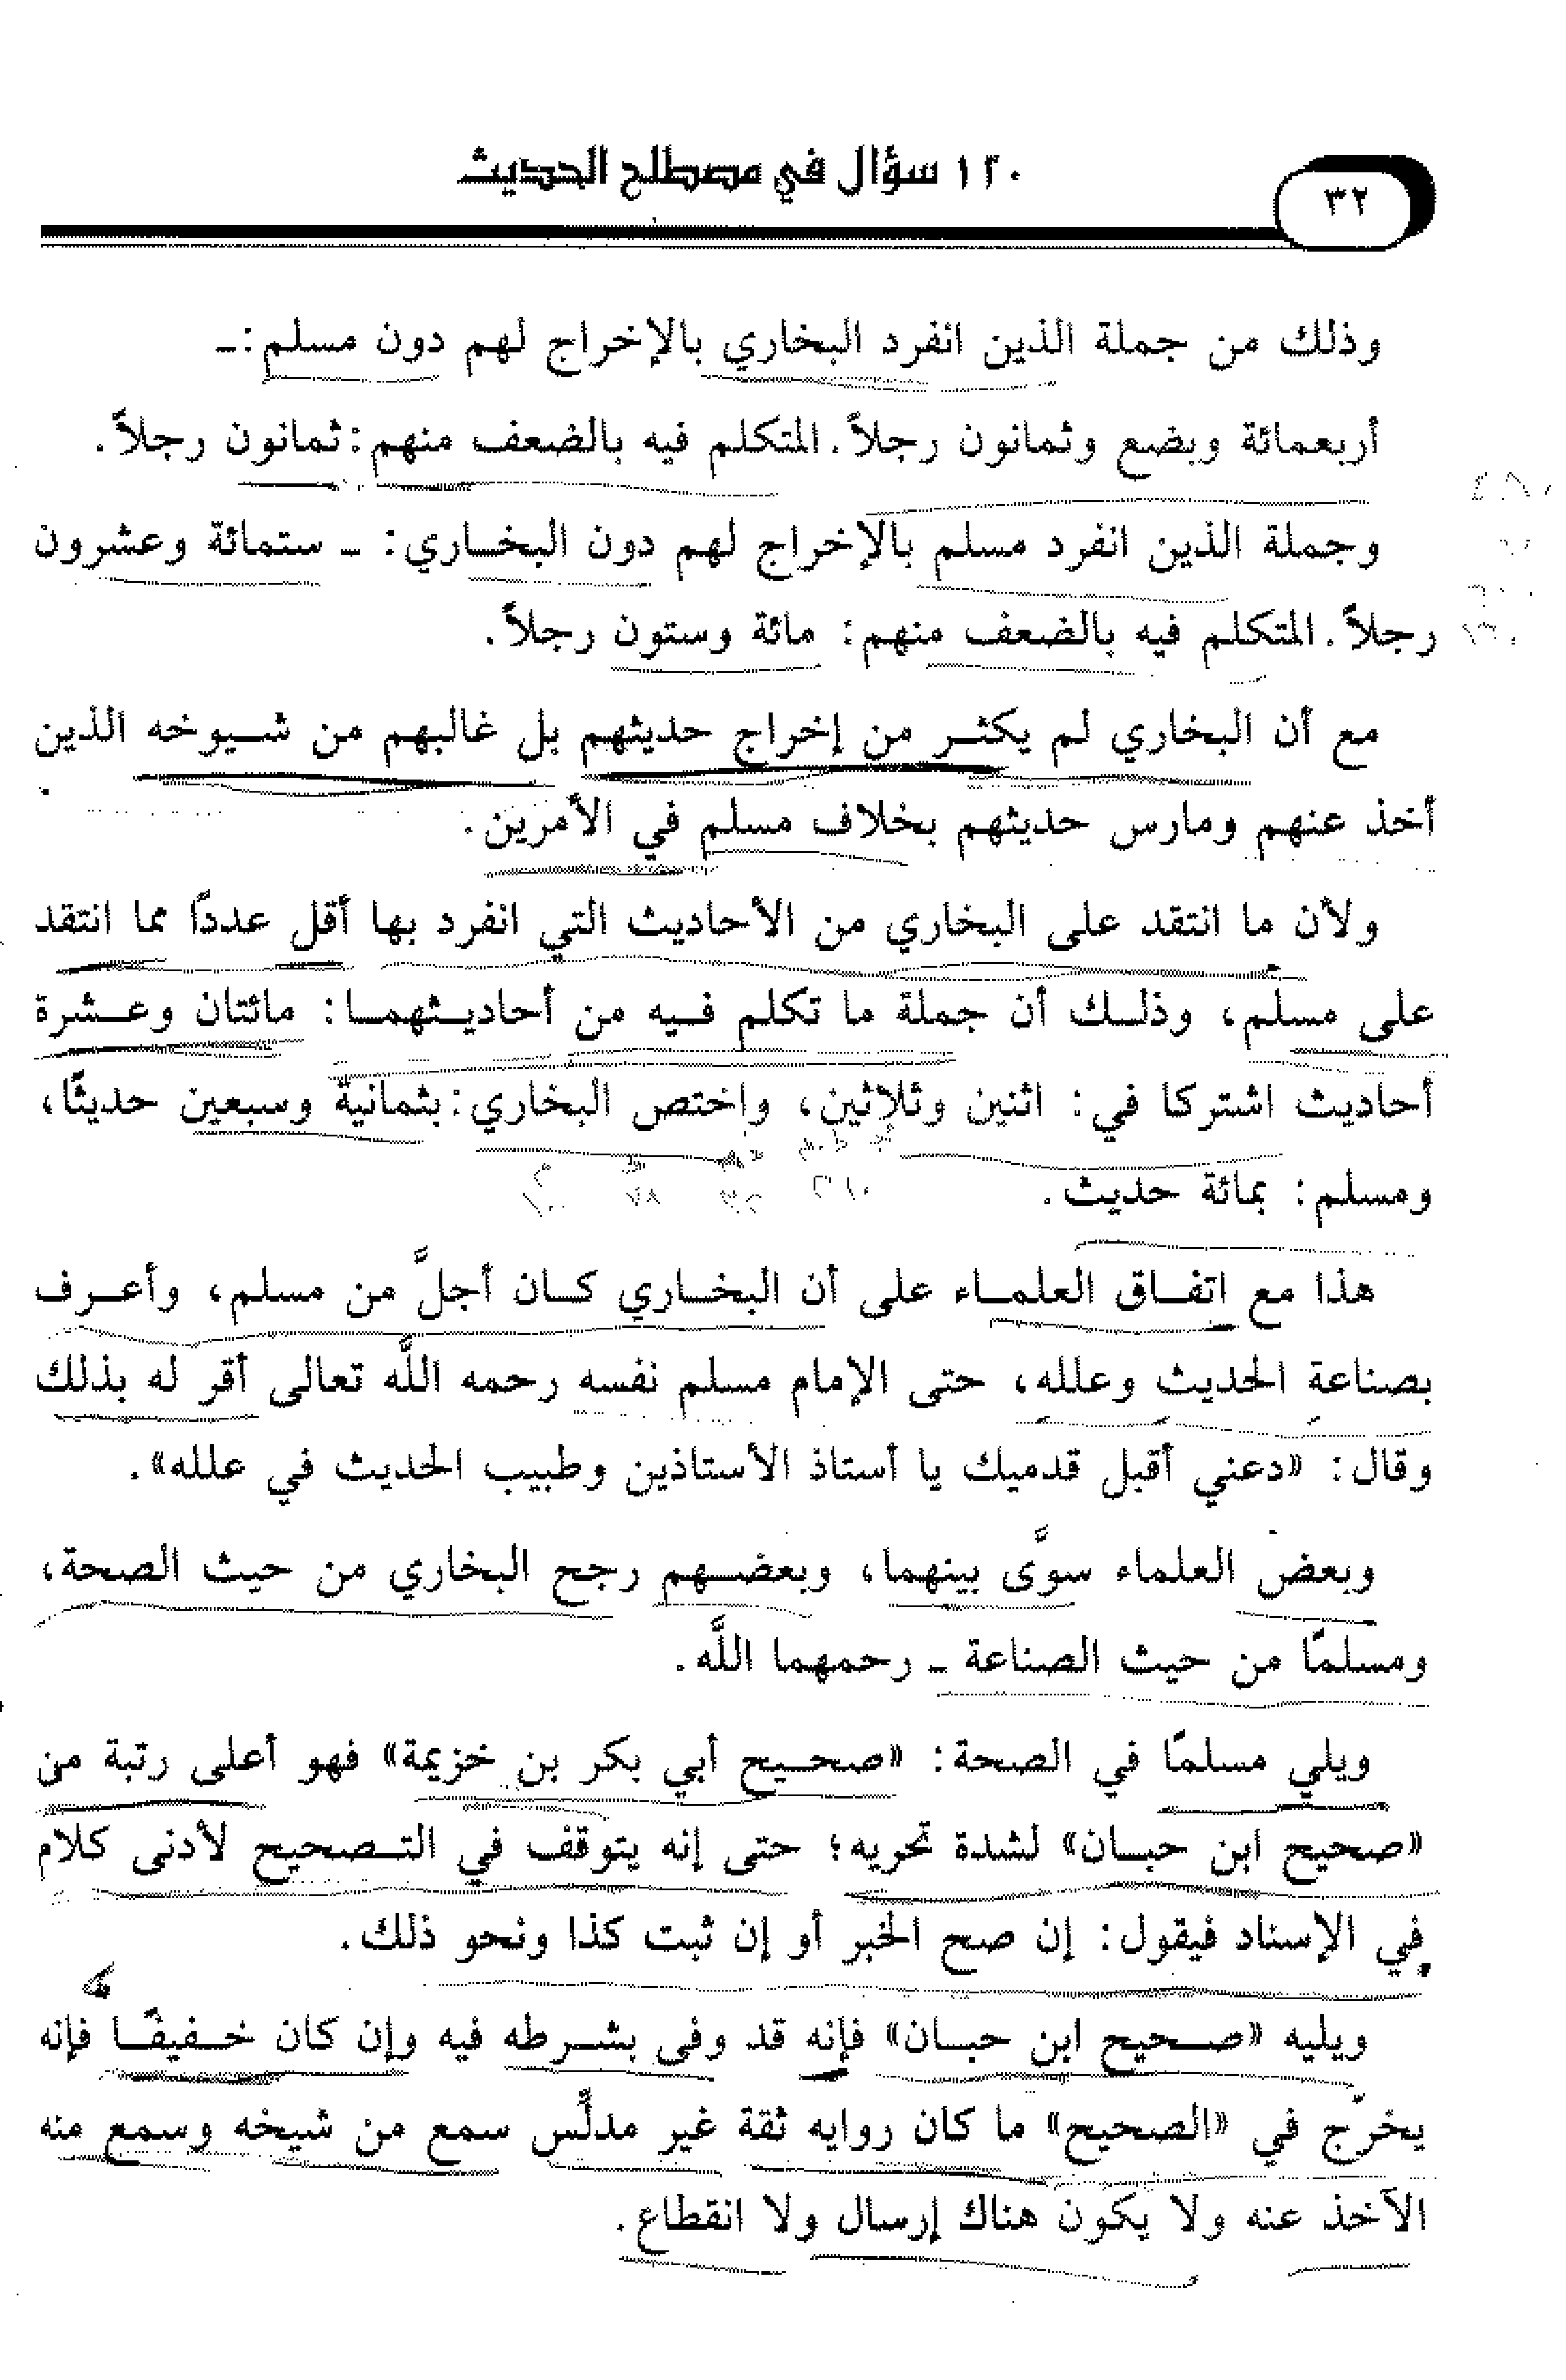 ١٢٠ سؤال في مصطلح الحديث
٣٢
وذلك من جملة الذين انفرد البخاري بالإخراج لهم دون مسلم:ـ
أربعمائة وبضع وثمانون رجلاً. المتكلم فيه بالضعف منهم: ثمانون رجلاً.
وجملة الذين انفرد مسلم بالإخراج لهم دون البخاري: ـ ستمائة وعشرون
رجلاً. المتكلم فيه بالضعف منهم: مائة وستون رجلاً.
مع أن البخاري لم يكثر من إخراج حديثهم بل غالبهم من شيوخه الذين
أخذ عنهم ومارس حديثهم بخلاف مسلم في الأمرين.
ولأن ما انتقد على البخاري من الأحاديث التي انفرد بها أقل عددًا مما انتقد
على مسلم، وذلك أن جملة ما تكلم فيه من أحاديثهما: مائتان وعشرة
أحاديث اشتركا في: اثنين وثلاثين، واختص البخاري: بثمانية وسبعين حديثًا،
ومسلم: بمائة حديث.
٧٨
هذا مع اتفاق العلماء على أن البخاري كان أجلَّ من مسلم، وأعرف
بصناعة الحديث وعلله، حتى الإمام مسلم نفسه رحمه اللَّه تعالى أقر له بذلك
وقال: «دعني أقبل قدميك يا أستاذ الأستاذين وطبيب الحديث في علله».
وبعض العلماء سوَّى بينهما، وبعضهم رجح البخاري من حيث الصحة،
ومسلمًا من حيث الصناعة ـ رحمهما اللَّه.
ويلي مسلمًا في الصحة: «صحيح أبي بكر بن خزيمة» فهو أعلى رتبة من
«صحيح ابن حبان» لشدة تحريه؛ حتى إنه يتوقف في التصحيح لأدنى كلام
في الإسناد فيقول: إن صح الخبر أو إن ثبت كذا ونحو ذلك.
ويليه «صحيح ابن حبان» فإنه قد وفى بشرطه فيه وإن كان خفيفًا فإنه
يخرّج في «الصحيح» ما كان روايه ثقة غير مدلِّس سمع من شيخه وسمع منه
الآخذ عنه ولا يكون هناك إرسال ولا انقطاع.